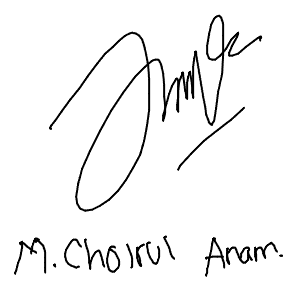 M. Choirul Anam.